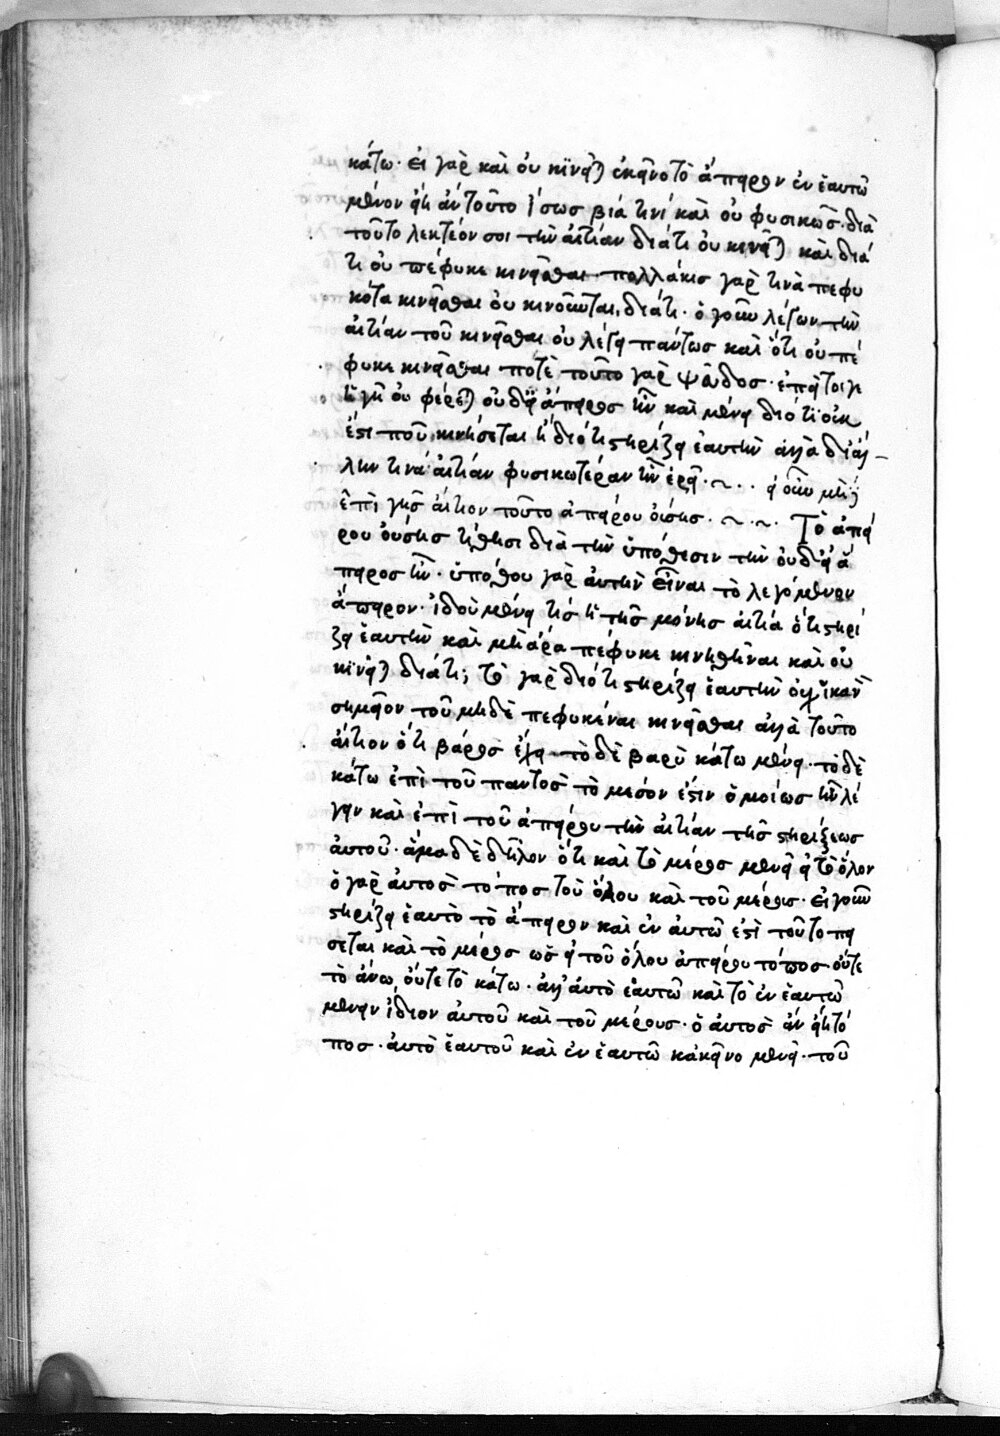 κάτω· εἰ γὰρ καὶ οὐ κινεῖται ἐκεῖνο τὸ ἄπειρον ἐν ἑαυτῶ
μένον εἴη ἂν τοῦτο ἴσως βία τινὶ καὶ οὐ φυσικῶς· διὰ
τοῦτο λεκτέον σοι τὴν αἰτίαν διάτι οὐ κινεῖται καὶ διά
τι οὐ πέφυκε κινεῖσθαι· πολλάκισ γὰρ τινὰ πεφυ
κότα κινεῖσθαι οὐ κινοῦνται, διάτι· ὁ γοῦν λέγων τὴν
αἰτίαν τοῦ κινεῖσθαι οὐ λέγει παντωσ καὶ ὅτι οὐ πέ
φυκε κινεῖσθαι ποτὲ τοῦτο γὰρ ψεῦδοσ· ἐπείτοιγε
ἡ γῆ οὐ φέρεται οὐδ' εἰ ἄπειροσ ἦν καὶ μένει διότι οὐκ
ἔστι ποῦ κινήσεται ἢ διότι στηρίζει ἑαυτὴν ἀλλὰ δι' ἄλ
λην τινά αἰτίαν φυσικωτέραν ἣν ἐρεῖ· εἰ οὖν μὴδ'
ἐπὶ γῆσ αἴτιον τοῦτο ἀπείρου οὔσησ· Τὸ ἀπεί
ρου οὔσησ τίθησι διὰ τὴν ὑπόθεσιν τὴν οὐδ' εἰ ἄ
πειροσ ἦν· ὑπόθου γὰρ αὐτὴν εἶναι τὸ λεγόμενον
ἄπειρον· ἰδοὺ μένει τίσ ἡ τῆσ μονῆσ αἰτία ὅτι στηρί
ζει ἑαυτὴν καὶ μὴ ἄρα πέφυκε κινηθῆναι καὶ οὐ
κινεῖται διάτι; τὸ γὰρ διότι στηρίζει ἑαυτὴν οὐχ ἱκανὸν
σημεῖον τοῦ μηδὲ πεφυκέναι κινεῖσθαι ἀλλὰ τοῦτο
αἴτιον ὅτι βάροσ ἔχει τὸ δὲ βαρὺ κάτω μένει· τὸ δὲ
κάτω ἐπὶ τοῦ παντὸσ τὸ μεσόν ἐστιν ὁμοίωσ ἦν λέ
γειν καὶ ἐπὶ τοῦ ἀπείρου τὴν αἰτίαν τῆσ στηρίξεωσ
αὐτοῦ· ἅμα δὲ δῆλον ὅτι καὶ τὸ μέροσ μένει εἰ τὸ ὅλον
ὁ γὰρ αὐτοσ τόποσ τοῦ ὅλου καὶ τοῦ μέρουσ· εἰ γοῦν
στηρίζει ἑαυτὸ τὸ ἄπειρον καὶ ἐν αὐτῶ ἐστὶ τοῦτο πεί
σεται καὶ τὸ μέροσ
τὸ ἄνω, οὔτε τὸ κάτω· ἀλλ' αὐτὸ ἑαυτῶ καὶ τὸ ἐν ἑαυτῶ
μένειν ἴδιον αὐτοῦ καὶ τοῦ μέρουσ· ὁ αὐτοσ ἂν εἴη τό
ποσ· αὐτὸ ἑαυτοῦ καὶ ἐν ἑαυτῶ κἀκεῖνο μένει· τοῦ